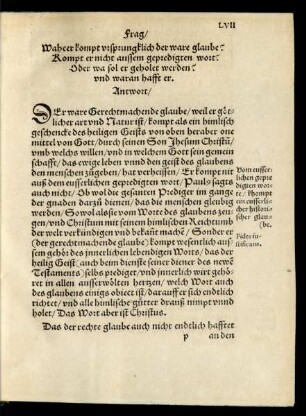 LVII
Frag/
Waheer kompt vrsprungklich der ware glaube?
Kompt er nicht aussem gepredigten wort?
Oder wa sol er geholet werden?
vnd waran hafft er.
Antwort/
DEr ware Gerechtmachende glaube/ weil er göt⸗
licher art vnd Natur ist/ kompt als ein himlisch
geschencke des heiligen Geists von oben herab one
mittel von Gott/ durch seinen Son Jhesum Christū/
vmb welchs willen/ vnd in welchen Gott sein gemein
schafft/ das ewige leben vnnd den geist des glaubens
den menschen zugeben/ hat verheissen/ Er kompt nit
auß dem eusserlichen gepredigten wort/ Pauls sagts
auch nicht/ Ob wol die gesanten Prediger im gange
der gnaden darzů dienen/ das die menschen gleubig
werden/ Sowol als sie vom Worte des glaubens zeu⸗
gen/ vnd Christum mit seinem himlischen Reichtumb
der welt verkündigen vnd bekañt machē/ Sonder er
(der gerechtmachende glaube) kompt wesentlich auß⸗
sem gehör des innerlichen lebendigen Worts/ das der
heilig Geist/ auch beim dienste seiner diener des newē
Testaments) selbs prediget/ vnd innerlich wirt gehö⸗
ret in allen ausserwölten hertzen/ welch Wort auch
des glaubens einigs obiect ist/ darauff er sich endtlich
richtet/ vnd alle himlische gütter drauß nimpt vnnd
holet/ Das Wort aber ist Christus.
Das der rechte glaube auch nicht endtlich hafftet
p an den
Vom eusser⸗
lichen gepre
digten wor⸗
te/ khompt
ein eusserli⸗
cher histori⸗
scher glau⸗
be.
Fides iu⸗
stificans.